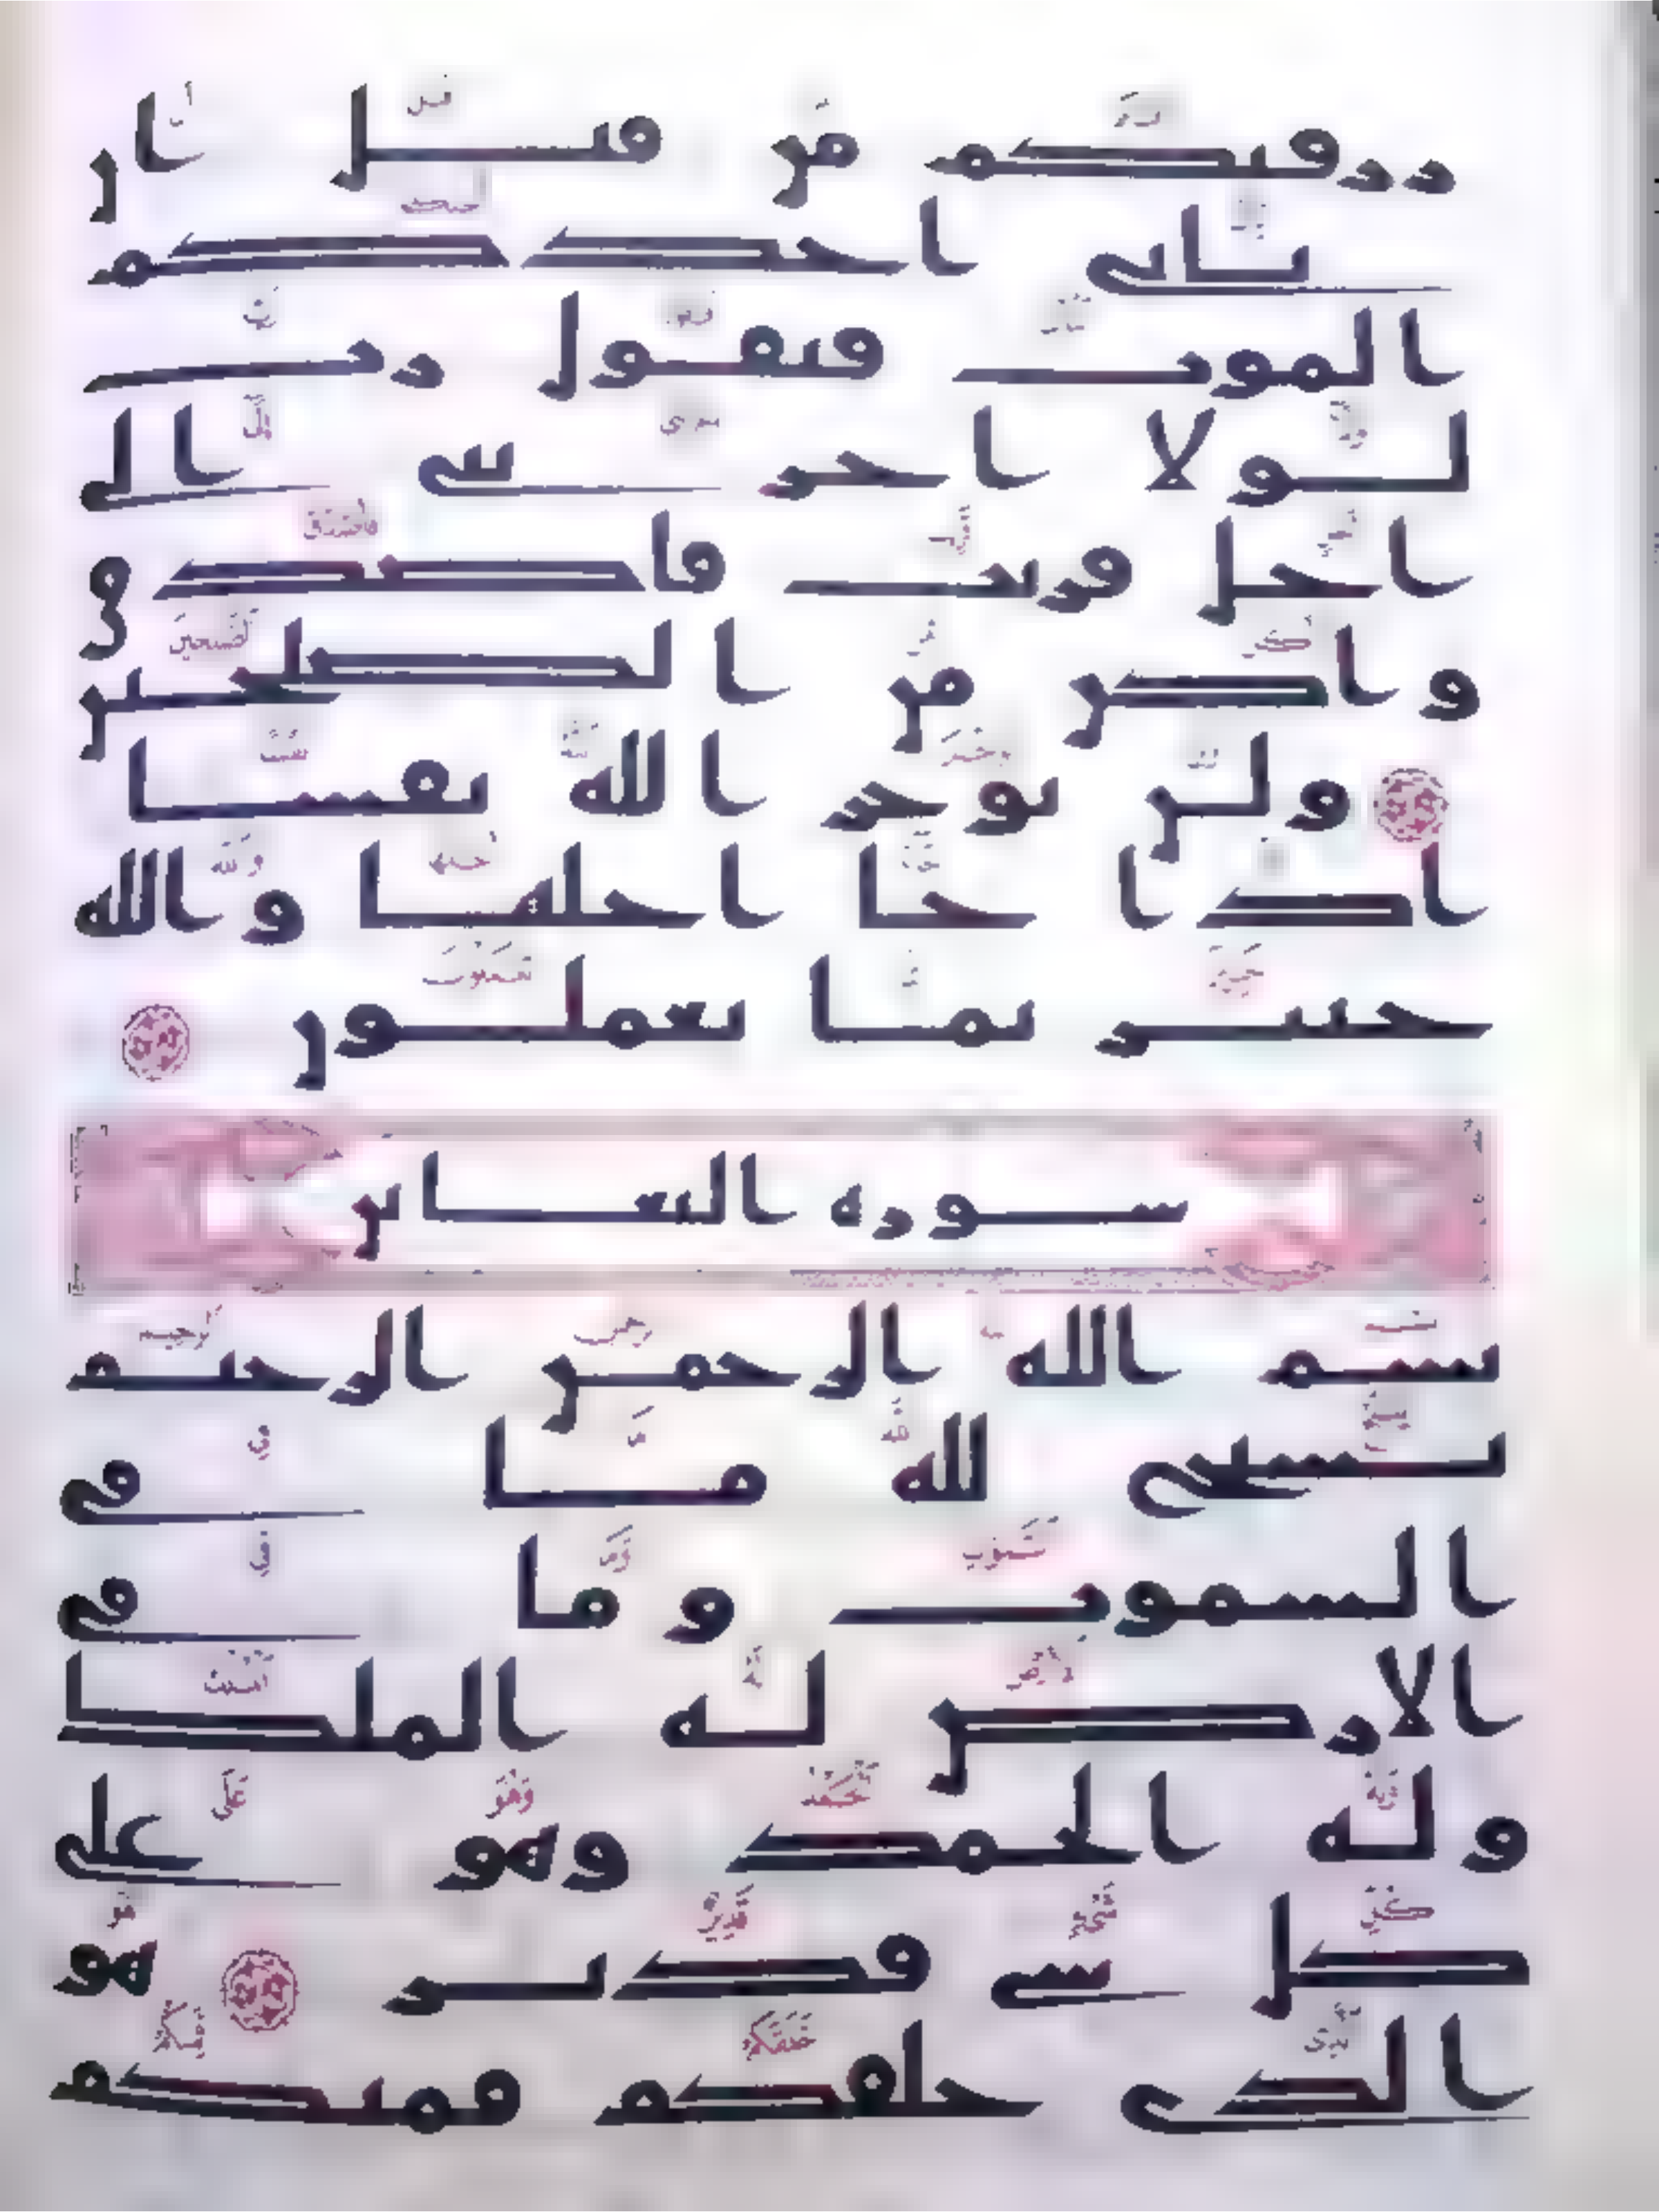 رزقنكم من قبل ان
ياتى احدكم
الموت فيقول رب
لولا اخرتنى الى
اجل قريب فاصدق
واكن من الصلحين
ولن يوخر الله نفسا
اذا جا اجلها والله
خبير بما تعملون
سورة التغابن
بسم الله الرحمن الرحيم
يسبح لله ما فى
السموت وما فى
الارض له الملك
وله الحمد وهو على
كل شى قدير هو
الذى خلقكم فمنكم